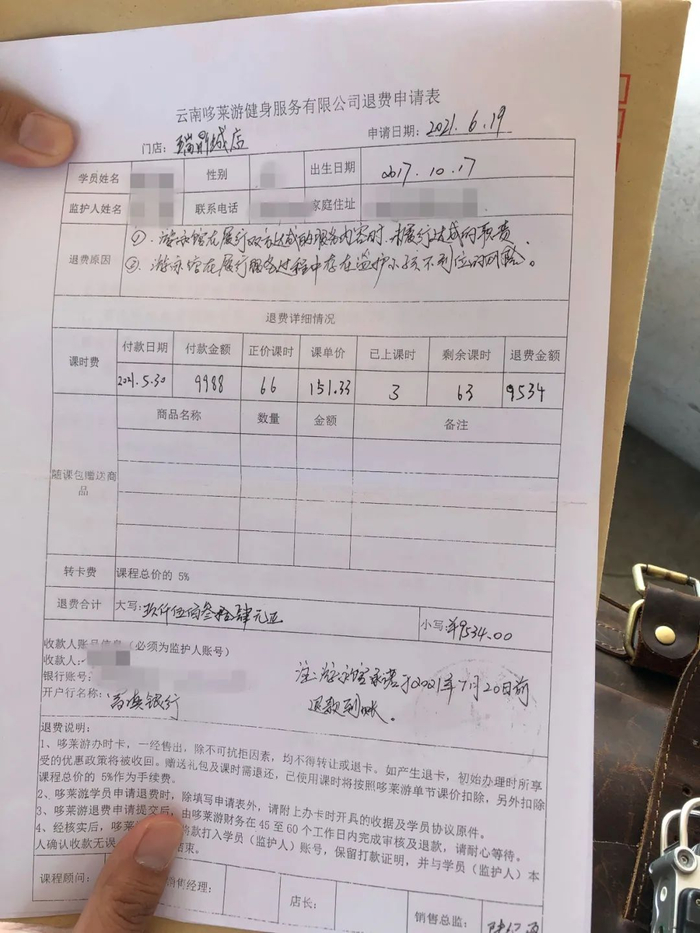 云南哆莱游健身服务有限公司退费申请表
门店: 瑞鼎城店 申请日期: 2021.6.19
学员姓名 性别 出生日期 2017.10.17
监护人姓名 联系电话 家庭住址
退费原因 ①.游泳馆在履行双方达成的服务内容时,未履行达成的职责
②.游泳馆在履行服务过程中存在监护小孩不到位的风险。
退费详细情况
课时费 付款日期 付款金额 正价课时 课单价 已上课时 剩余课时 退费金额
2021.5.30 9988 66 151.33 3 63 9534
随课包赠送商品 商品名称 数量 金额 备注
转卡费 课程总价的 5%
退费合计 大写: 玖仟伍佰叁拾肆元正 小写: ¥9534.00
收款人账户信息(必须为监护人账号)
收款人:
银行账号:
开户行名称: 富滇银行
注:游泳馆承诺于2021年7月20日前
退款到账。
退费说明:
1、哆莱游办时卡,一经售出,除不可抗拒因素,均不得转让或退卡。如产生退卡,初始办理时所享
受的优惠政策将被收回。赠送礼包及课时需退还,已使用课时将按照哆莱游单节课价扣除,另外扣除
课程总价的 5%作为手续费。
2、哆莱游学员申请退费时,除填写申请表外,请附上办卡时开具的收据及学员协议原件。
3、哆莱游退费申请提交后,由哆莱游财务在 45 至 60 个工作日内完成审核及退款,请耐心等待。
4、经核实后,哆莱 将款打入学员(监护人)账号,保留打款证明,并与学员(监护人)本
人确认收款无误 结束。
课程顾问: 销售经理: 店长: 销售总监: